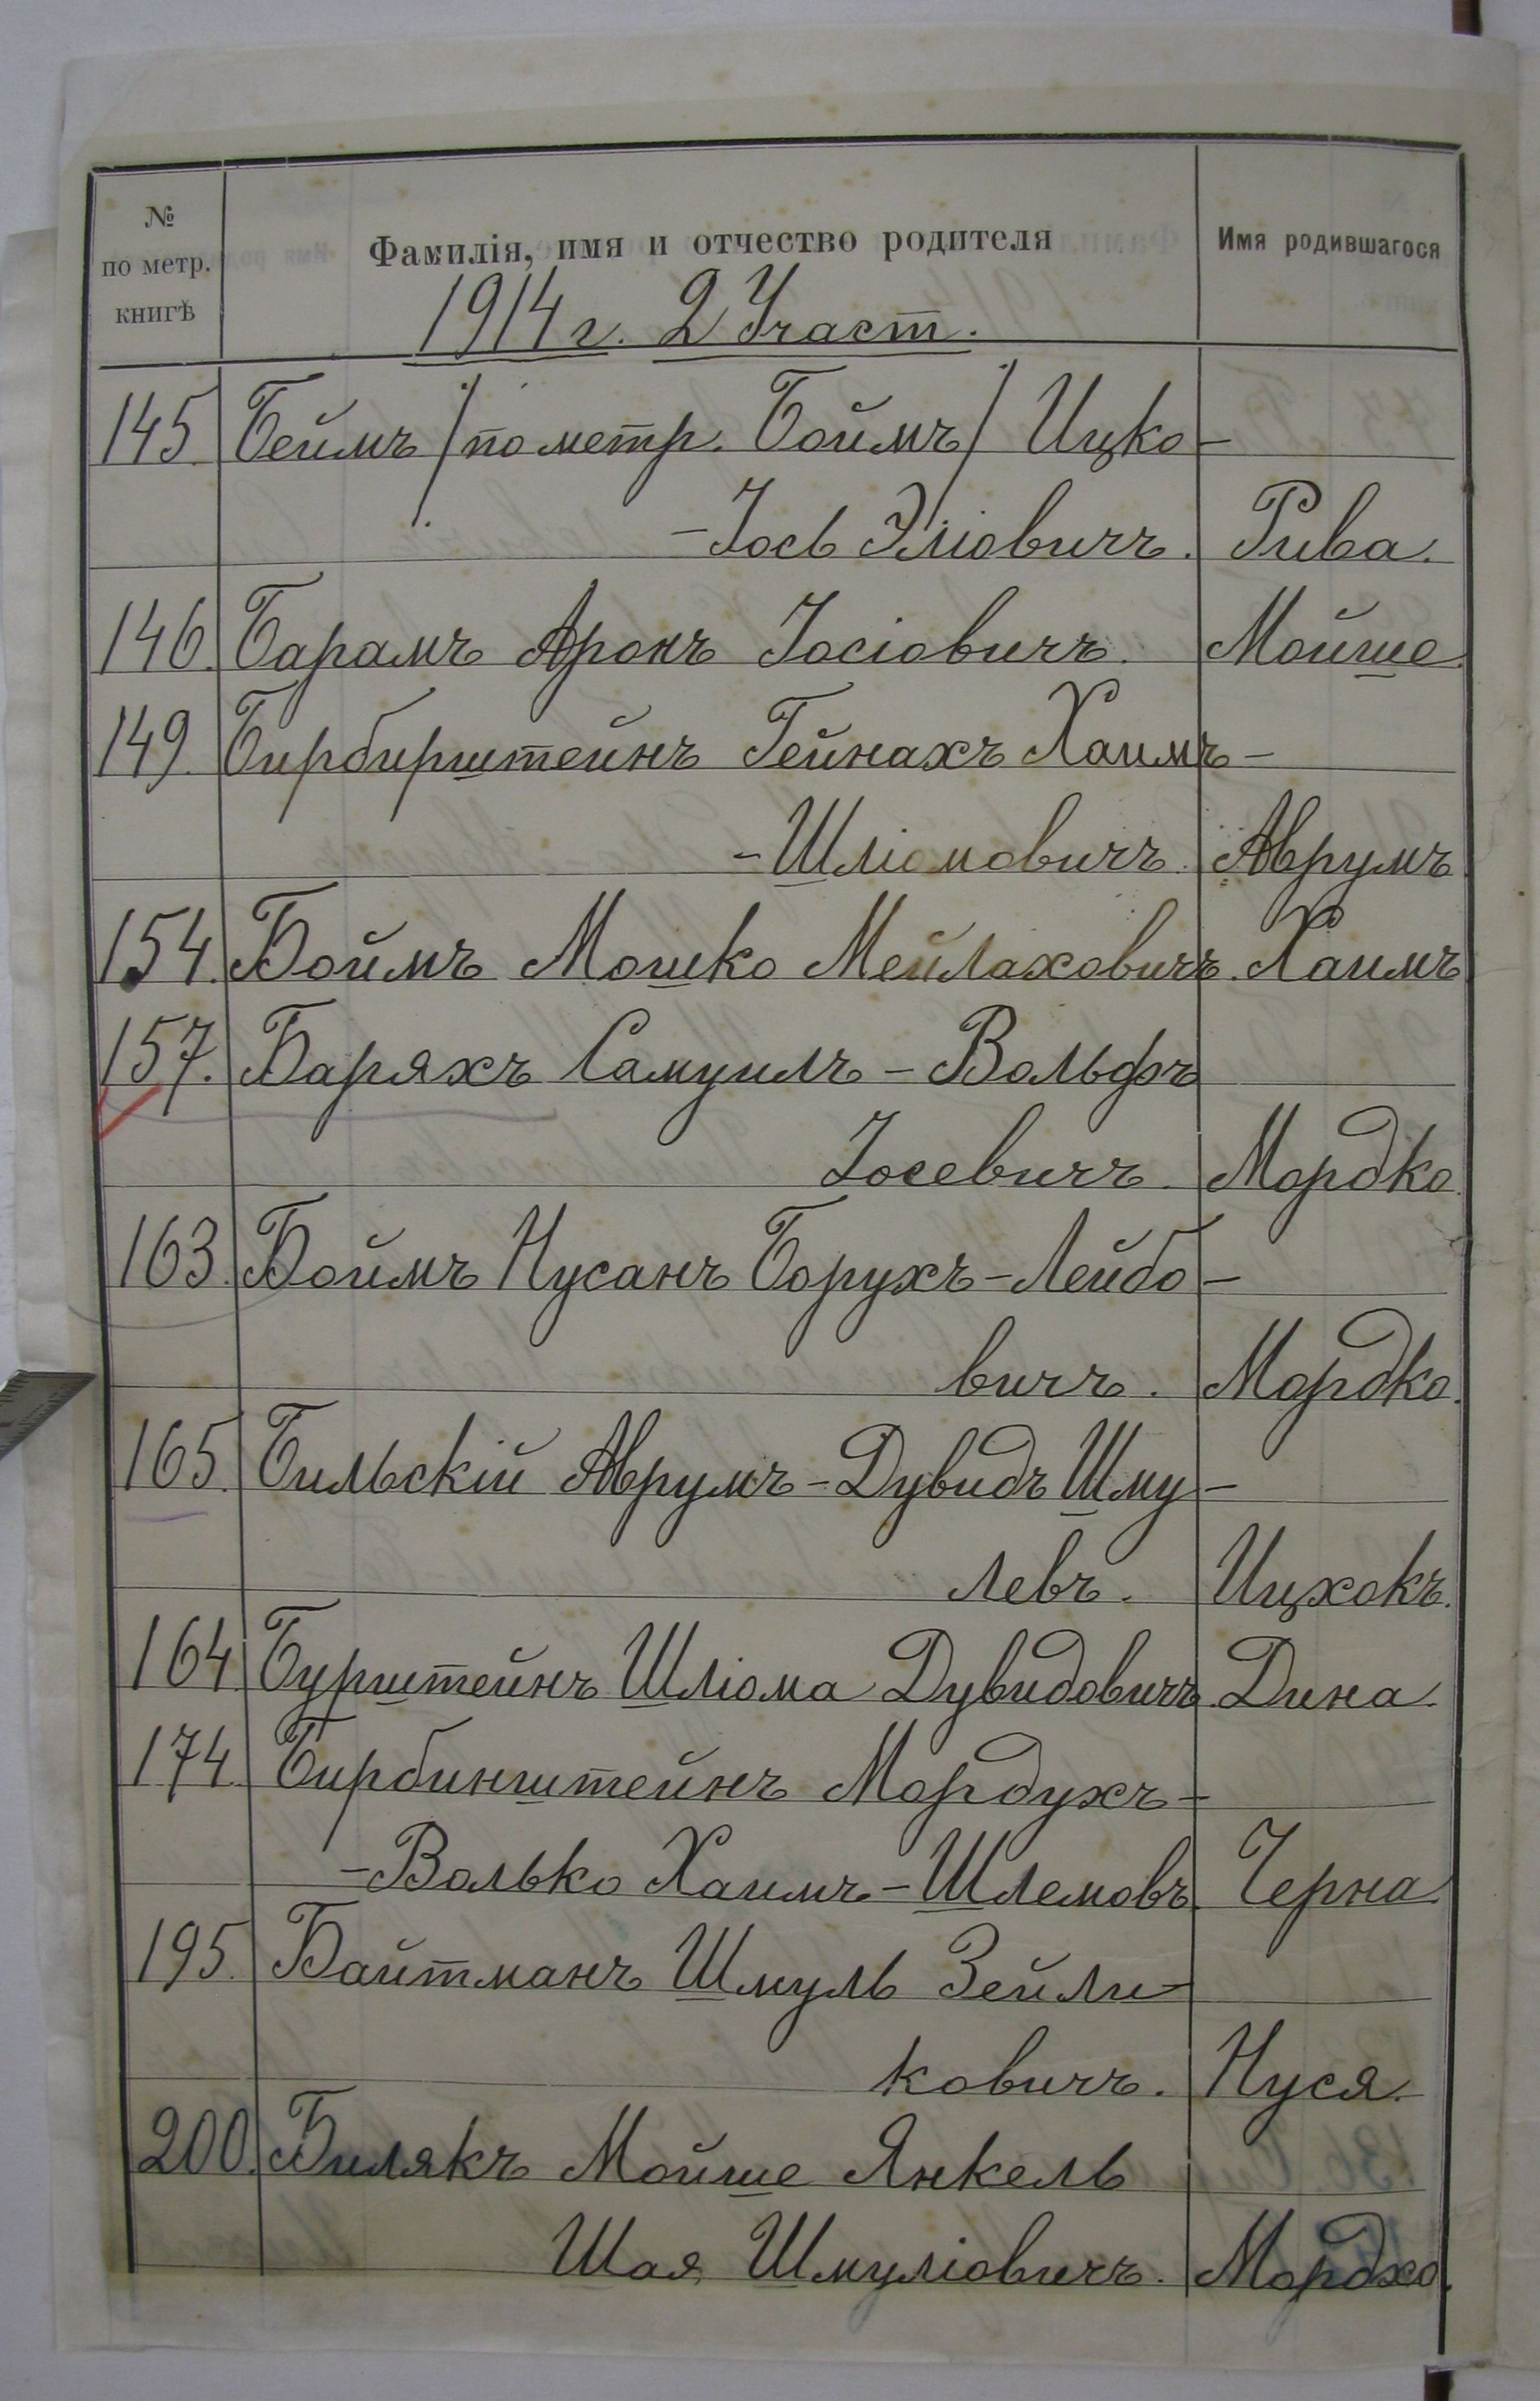 № по метр. книгѣ Фамилія, имя и отчество родителя Имя родившагося
1914 г. 2 Участ.
145. Беймъ /по метр. Боймъ/ Ицко-
-Іось Эліовичъ. Рива.
146. Барамъ Аронъ Іосіовичъ. Мойше.
149. Бирбирштейнъ Гейнахъ Хаимъ-
-Шліомовичъ. Аврумъ
154. Боймъ Мошко Мейлаховичъ. Хаимъ
157. Баряхъ Самуилъ-Вольфъ
Іосевичъ. Мордко.
163. Боймъ Нусанъ Борухъ-Лейбо-
вичъ. Мордко.
165. Бильскій Аврумъ-Дувидъ Шму-
левъ. Ицхокъ.
164 Бурштейнъ Шліома Дувидовичъ Дина.
174. Бирбинштейнъ Мордухъ-
-Волько Хаимъ-Шлемовъ. Черна
195. Байтманъ Шмуль Зейли-
ковичъ. Нуся.
200. Билякъ Мойше Янкель
Шая Шмуліовичъ. Мордхо.